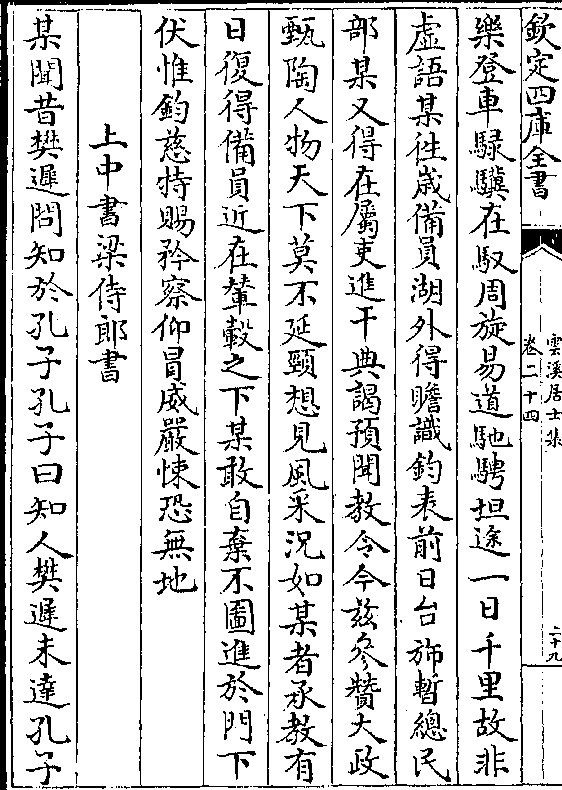 欽定四庫全書
雲溪居士集
卷二十四
二十九
樂登車騄驥在馭周旋易道馳騁坦途一日千里故非
虛語某徃歳備員湖外得瞻識鈞表前日台斾暫總民
部某又得在屬吏進干典謁預聞教令今兹叅贊大政
甄陶人物天下莫不延頸想見風采況如某者承教有
日復得備員近在輦轂之下某敢自棄不圖進於門下
伏惟鈞慈特賜矜察仰冒威嚴悚恐無地
上中書梁侍郎書
某聞昔樊遲問知於孔子孔子曰知人樊遲未達孔子